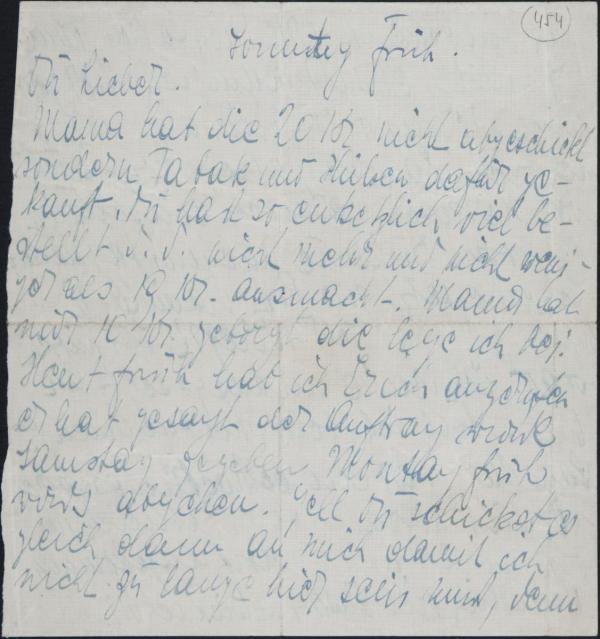 454
Sonntag Früh.
Du Lieber.
Mama hat die 20 Kr. nicht abgeschickt
sondern Tabak und Hülsen dafür ge-
kauft. Du hast so entsetzlich viel be-
stellt d. d. nicht mehr und nicht weni-
ger als 19 Kr. ausmacht. Mama hat
mir 10 Kr. geborgt die lege ich bei.
Heut früh hab ich Erich angerufen
er hat gesagt der Auftrag wird
Samstag gegeben Montag früh
wirds abgehen. Gell Du schickst es
gleich dann an mich damit ich
nicht zu lange hier sein muss, denn